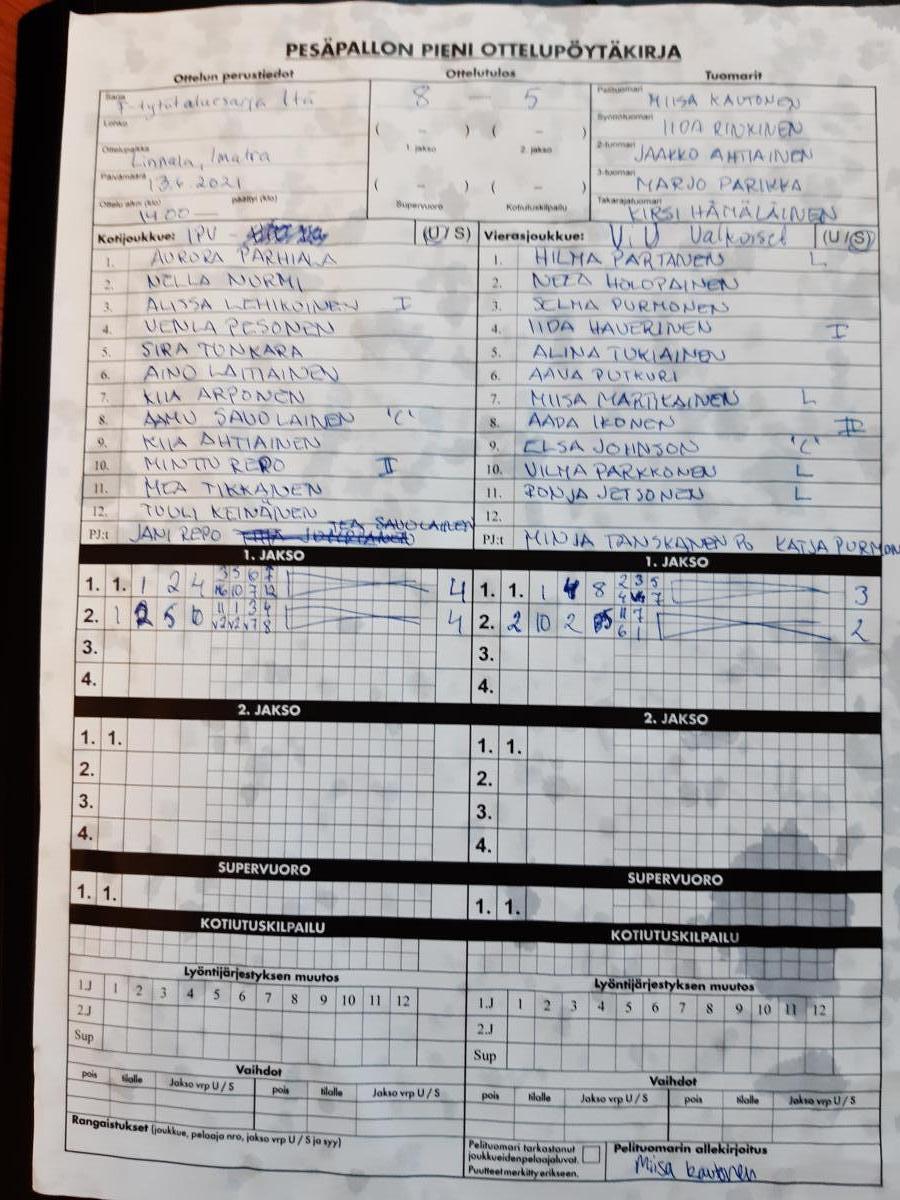 PESÄPALLON PIENI OTTELUPÖYTÄKIRJA
Ottelun perustiedot
Sarja F-tytöt aluesarja Itä
Lohko
Ottelupaikka Linnala, Imatra
Päivämäärä 13.6.2021
Ottelu alkoi (klo) päättyi (klo)
14.00 —
Ottelutulos
8 — 5
( - ) ( - )
1. jakso 2. jakso
( - ) ( - )
Supervuoro Kotiutuskilpailu
Tuomarit
Pelituomari MIISA KAUTONEN
Syöttötuomari IIDA RINKINEN
2-tuomari JAAKKO AHTIAINEN
3-tuomari MARJO PARIKKA
Takarajatuomari KIRSI HÄMÄLÄINEN
Kotijoukkue: IPV - (U / S)
1. AURORA PARHIALA
2. NELLA NURMI
3. ALISSA LEHIKOINEN I
4. VENLA PESONEN
5. SIRA TUNKARA
6. AINO LAITIAINEN
7. KIIA ARPONEN
8. AAMU SAVOLAINEN 'C'
9. KIIA AHTIAINEN
10. MINTTU REPO II
11. MEA TIKKANEN
12. TUULI KEINÄNEN
PJ:t JANI REPO TEA SAVOLAINEN
Vierasjoukkue: ViU Valkoiset (U / S)
1. HILMA PARTANEN L
2. NEEA HOLOPAINEN
3. SELMA PURMONEN
4. IIDA HAVERINEN I
5. ALINA TUKIAINEN
6. AAVA PUTKURI
7. MIISA MARTIKAINEN L
8. AADA IKONEN II
9. ELSA JOHNSON 'C'
10. VILMA PARKKONEN L
11. RONJA JETSONEN L
12.
PJ:t MINJA TANSKANEN PO KATJA PURMON
1. JAKSO
1. 1. 1 2 4 4
2. 1 2 5 10 4
3.
4.
1. JAKSO
1. 1. 1 4 8 3
2. 2 10 2 2
3.
4.
2. JAKSO
1. 1.
2.
3.
4.
2. JAKSO
1. 1.
2.
3.
4.
SUPERVUORO
1. 1.
SUPERVUORO
1. 1.
KOTIUTUSKILPAILU
KOTIUTUSKILPAILU
Lyöntijärjestyksen muutos
1.J 1 2 3 4 5 6 7 8 9 10 11 12
2.J
Sup
Lyöntijärjestyksen muutos
1.J 1 2 3 4 5 6 7 8 9 10 11 12
2.J
Sup
Vaihdot
pois tilalle Jakso vrp U / S pois tilalle Jakso vrp U / S
Vaihdot
pois tilalle Jakso vrp U / S pois tilalle Jakso vrp U / S
Rangaistukset (joukkue, pelaaja nro, jakso vrp U / S ja syy)
Pelituomari tarkastanut
joukkueidenpelaajaluvat.
Puutteet merkitty erikseen.
Pelituomarin allekirjoitus
Miisa Kautonen